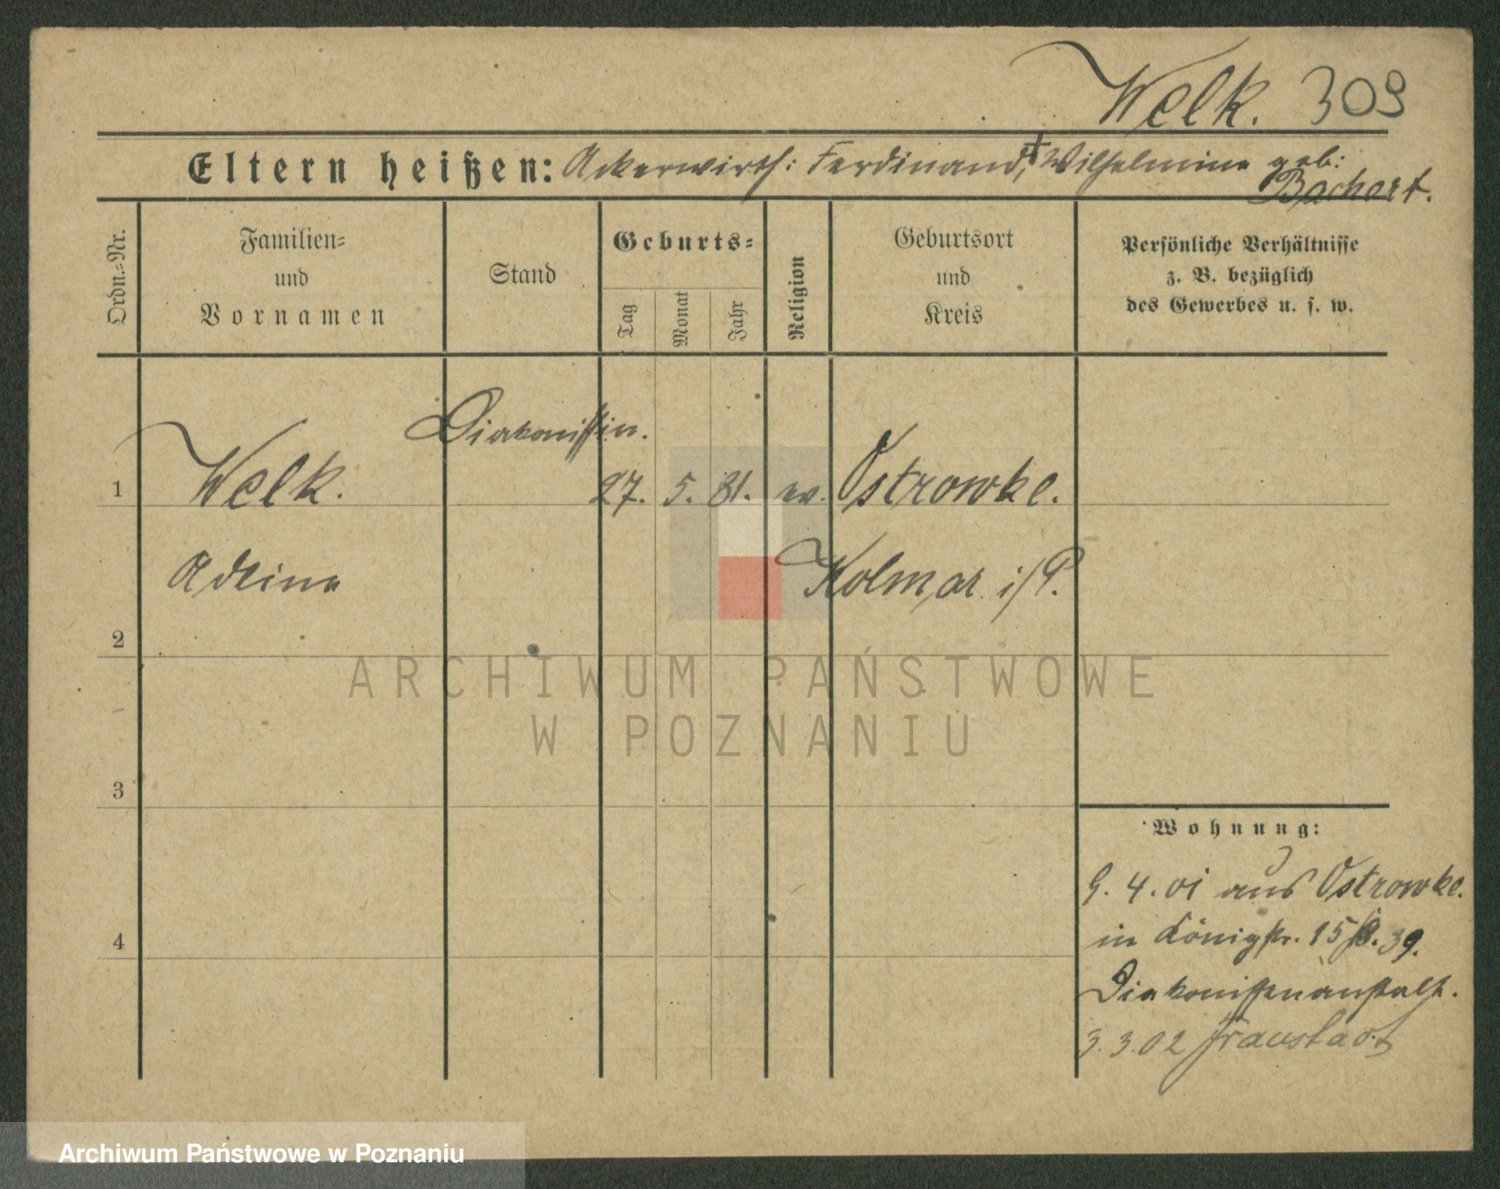 Welk. 309
Eltern heißen: Ackerwirth: Ferdinand, † Wilhelmine geb:
Bachart.
Ordn.=Nr.
Familien=
und
Vornamen
Stand
Geburts=
Tag
Monat
Jahr
Religion
Geburtsort
und
Kreis
Persönliche Verhältnisse
z. B. bezüglich
des Gewerbes u. s. w.
Diakonissin.
1 Welk. 27. 5. 81. ev. Ostrowke.
Adeine Kolmar i/P.
2
ARCHIWUM PAŃSTWOWE
W POZNANIU
3
Wohnung:
9. 4. 01 aus Ostrowke.
4
in Königstr. 39.
Diakonissenanstalt.
3. 3. 02 Fraustadt
Archiwum Państwowe w Poznaniu